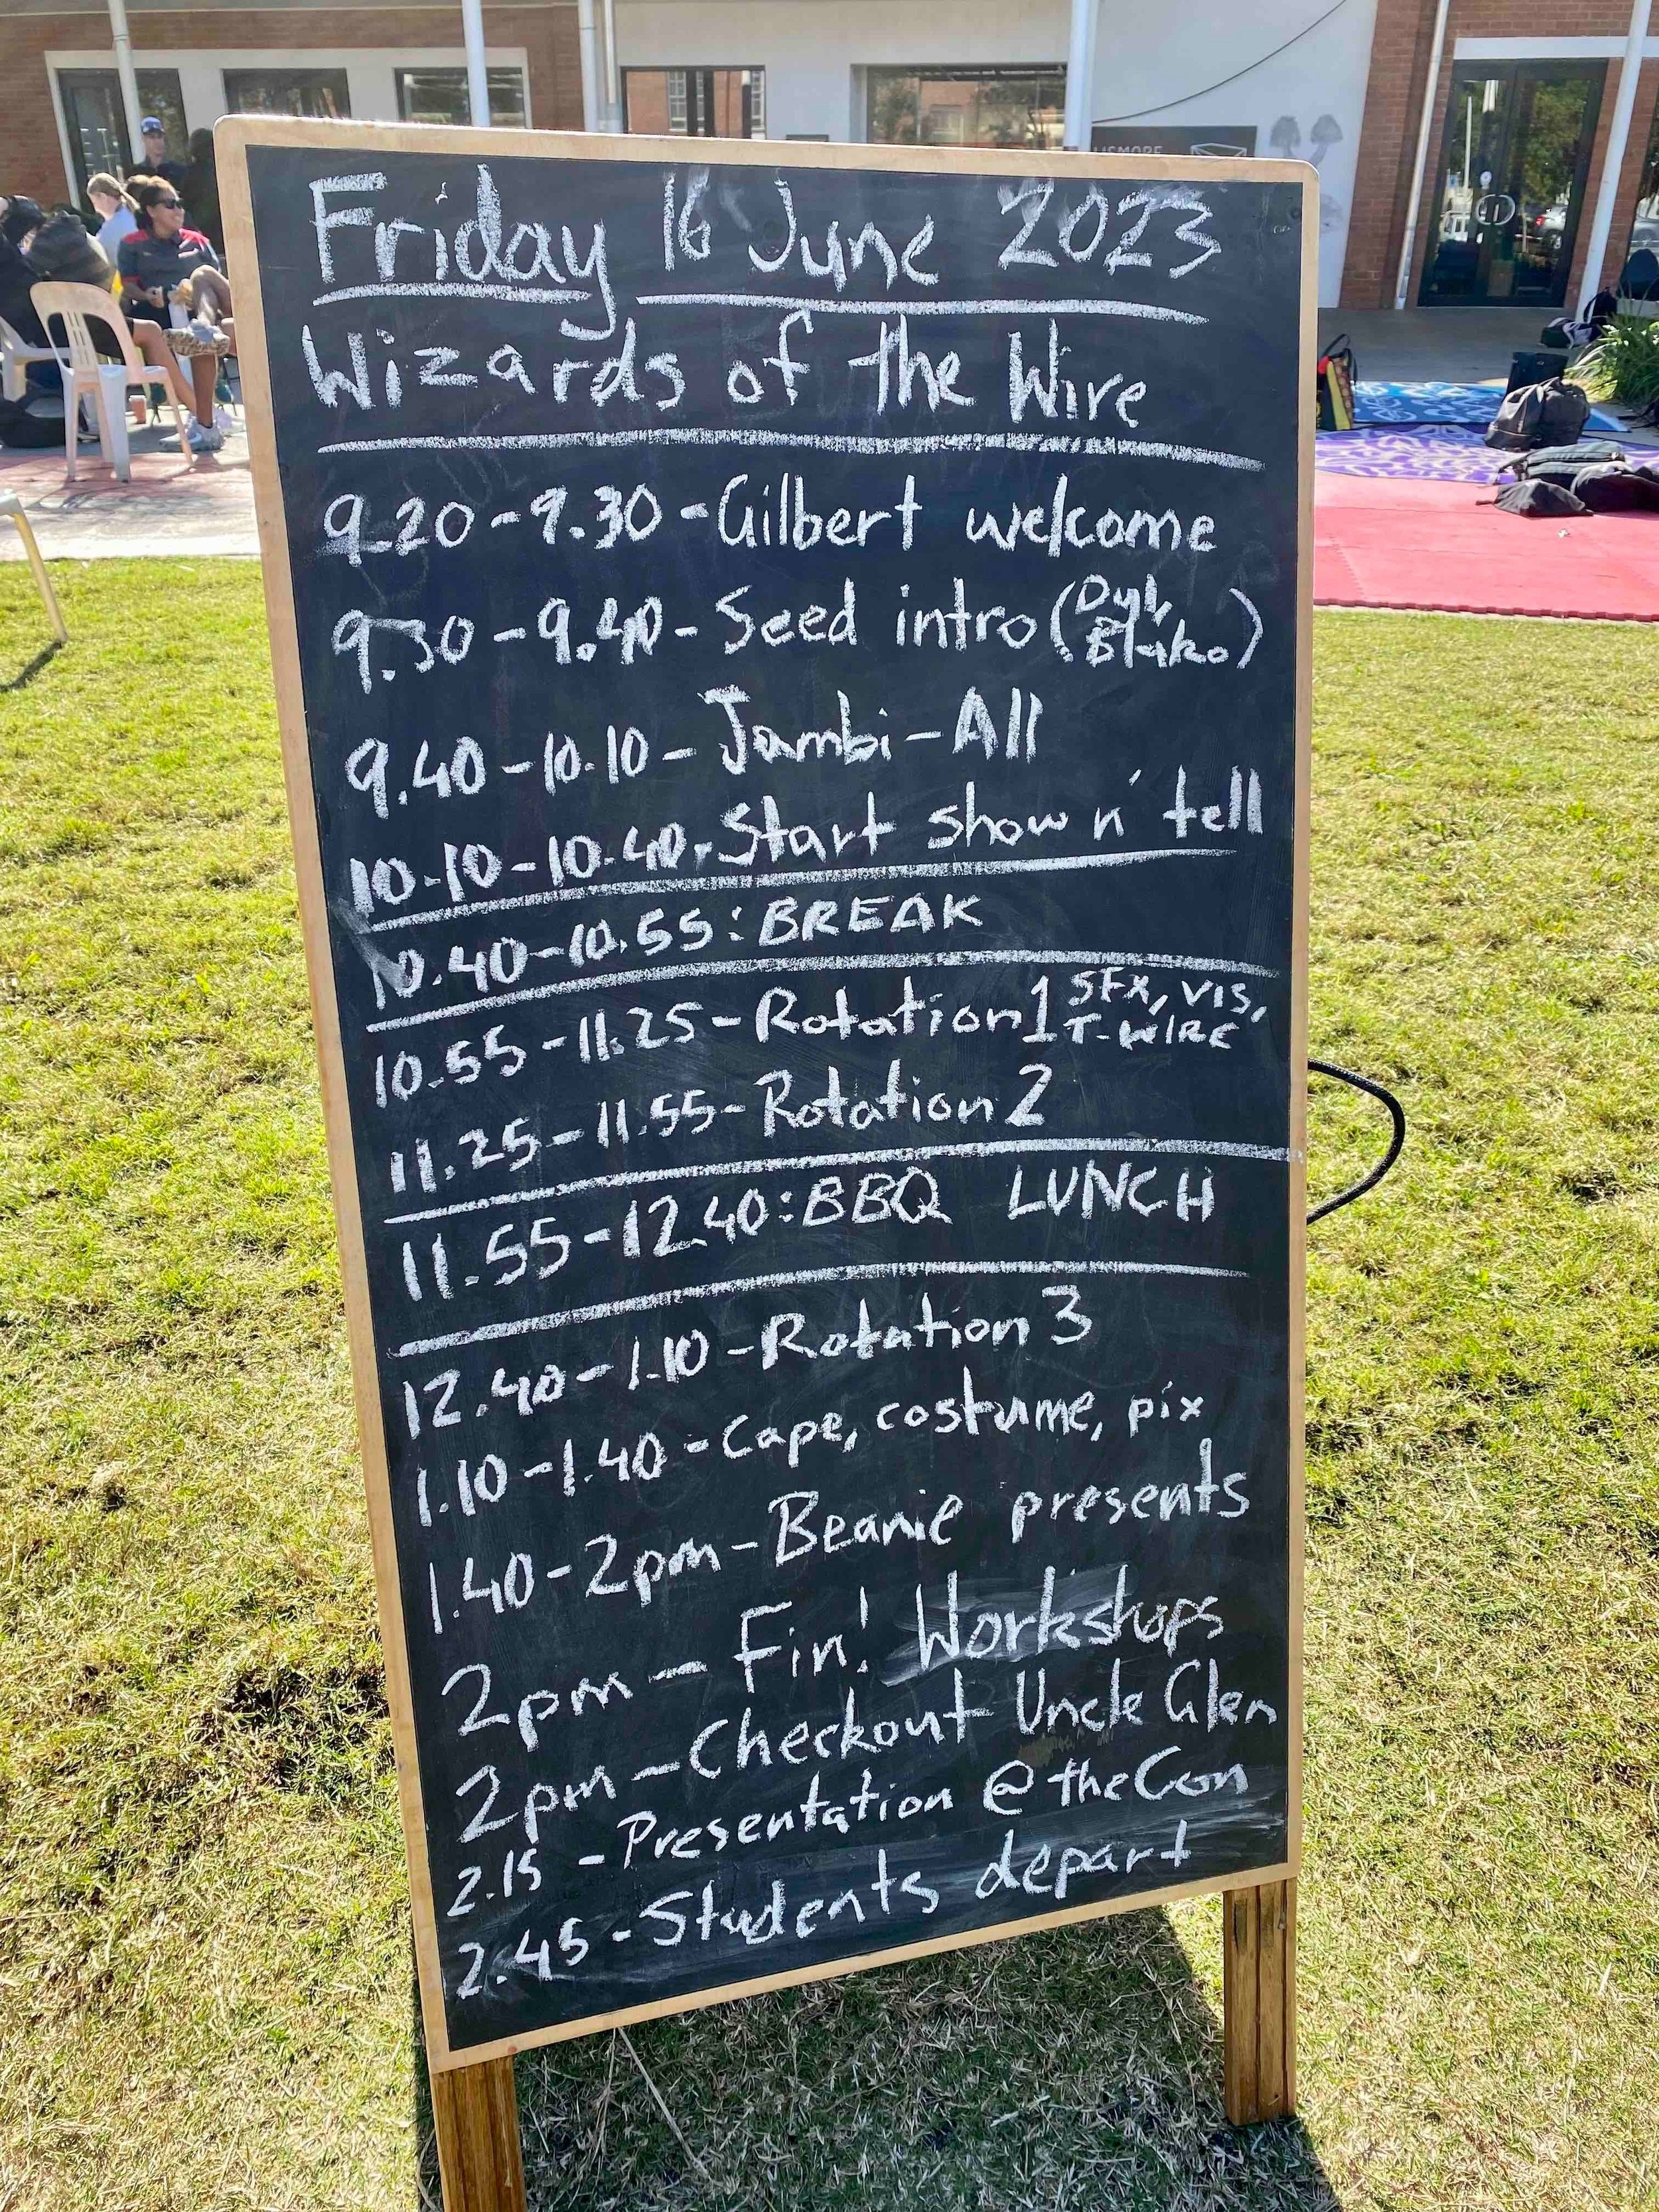 LISMORE
Friday 16 June 2023
Wizards of the Wire
9.20-9.30-Gilbert welcome
9.30-9.40-Seed intro (Dyl, Blako)
9.40-10.10-Jambi-All
10-10-10.40-Start show n' tell
10.40-10.55: BREAK
10.55-11.25-Rotation 1 SFX, VIS, T-WIRE
11.25-11.55-Rotation 2
11.55-12.40: BBQ LUNCH
12.40-1.10-Rotation 3
1.10-1.40-Cape, costume, pix
1.40-2pm-Beanie presents
2pm-Fin! Workshops
2pm-Checkout Uncle Glen
2.15-Presentation @ the Con
2.45-Students depart